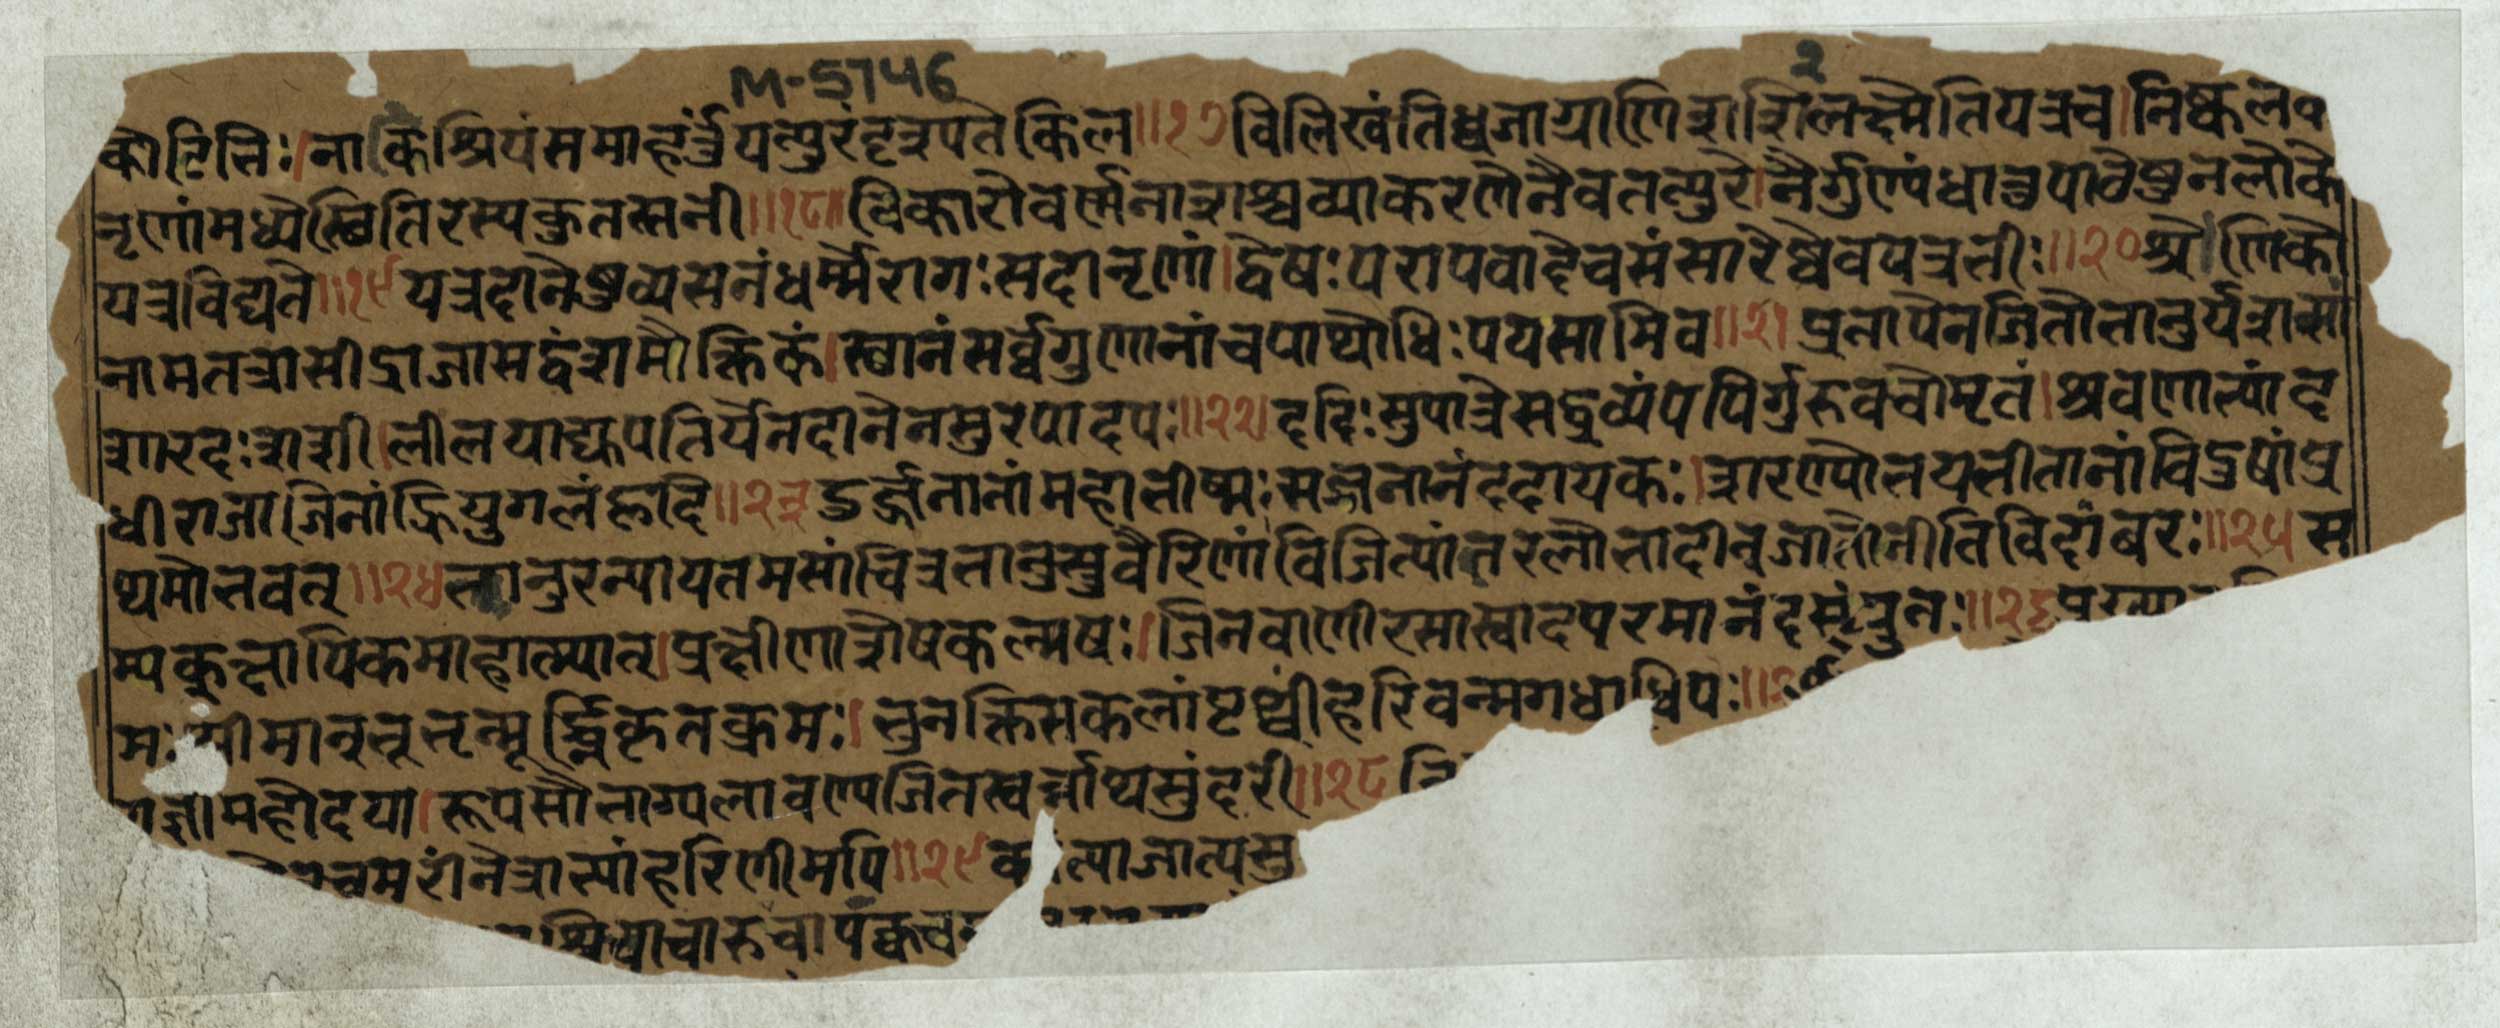 M-5746 २
कोटिभिः।नाकिश्रियंसमाहर्त्तुयत्पुरंदृत्रपतेकिल॥१७विलिखंतिध्वजाग्राणिशशिलक्ष्मेतियत्रच।निष्कलं
नृणांमध्येस्थितिरस्यकुतस्तनी॥१८॥विकारोवर्णनाशश्चव्याकरणेनैवतत्पुरे।नैर्गुण्यंधानुपाठेषुनलोके
यत्रविद्यते॥१९यत्रदानेषुव्यसनंधर्मेरागःसदानृणां।द्वेषःपरापवादेचसंसारेष्वेवयत्रभीः॥२०श्रेणिको
नामतत्रासीद्राजासद्वंशमौक्तिकं।स्थानंसर्व्वगुणानांचपाथोधिःपयसामिव॥२१प्रतापेनजितोभानुर्यशसा
शारदःशशी।लीलयाह्यपतिर्येनदानेनसुरपादपः॥२२।ददिःसुपात्रेसद्द्रव्यंपपिर्गुरुवचोमृतं।श्रवणाभ्यांद
धीराजाजिनांह्रियुगलंहृदि॥२३दुर्ज्जनानांमहाभीष्मःसज्जनानंददायकः।शरण्योभयभीतानांविदुषांप्र
थमोभवत्॥२४भानुरन्यायतमसांचित्रभानुस्तुवैरिणांविजित्यांतरलोभादीन्जातोनीतिविदांबरः॥२५स
म्यक्त्वक्षायिकमाहात्म्यात्।प्रक्षीणाशेषकल्मषः।जिनवाणीरसास्वादपरमानंदसंयुतः॥२६
मःसीमान्भूभृन्मूर्द्ध्निकृतक्रमः।भुनक्तिसकलांपृथ्वींहरिवन्मगधाधिपः॥
राज्ञीमहोदया।रूपसौभाग्यलावण्यजितस्वर्न्नाथसुंदरी॥२८
चमरींनेत्राभ्यांहरिणीमपि॥२९
श्रियाचारुचापंक्वच